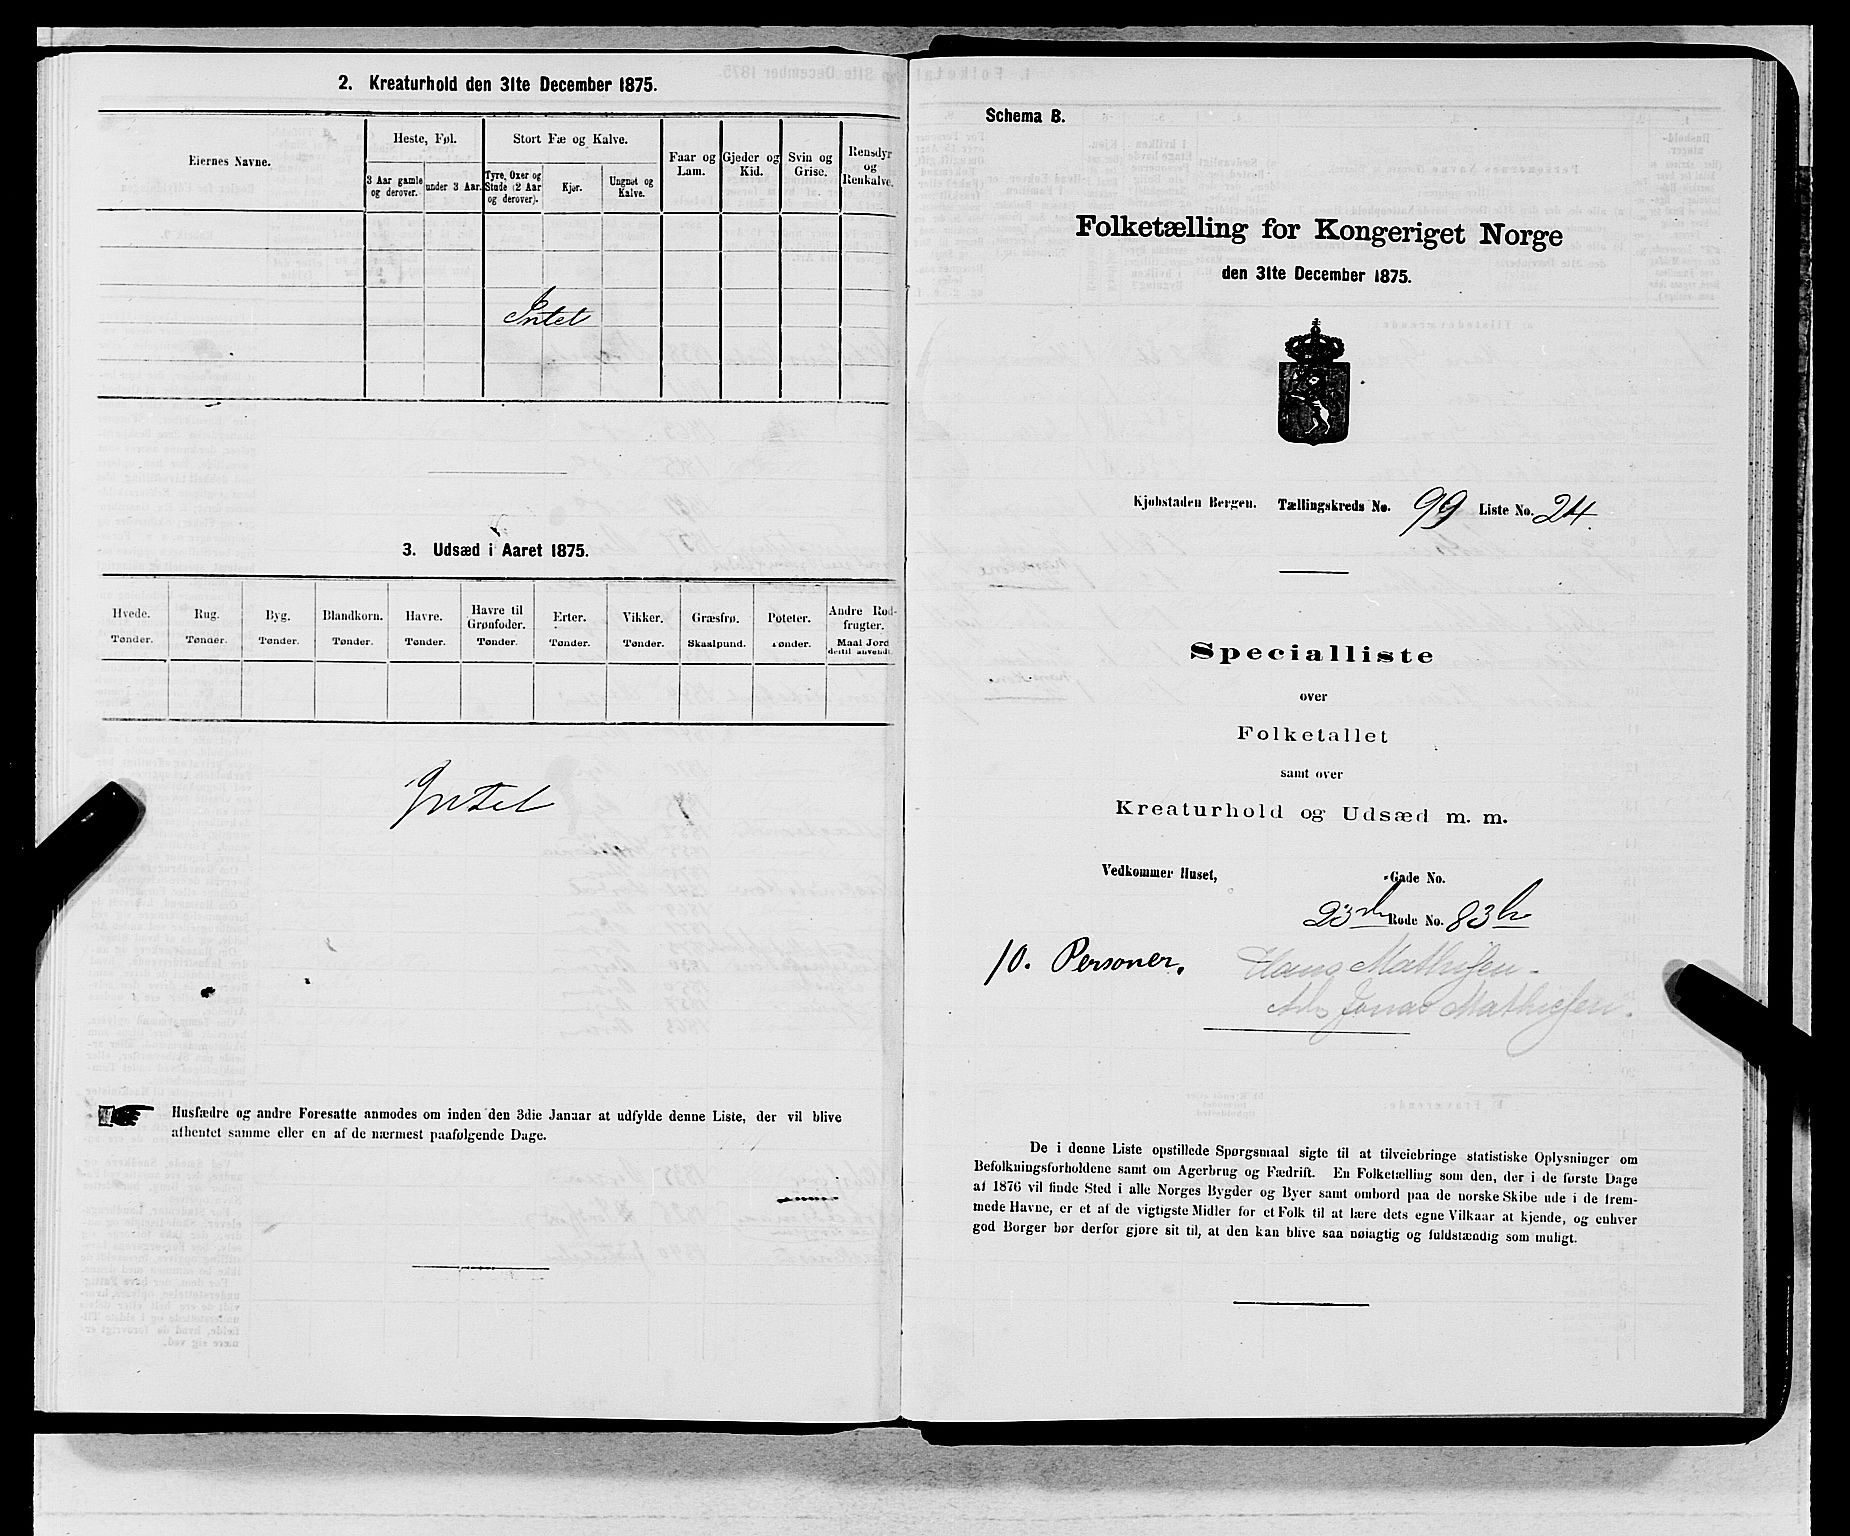 2. Kreaturhold den 31te December 1875.
Eiernes Navne.
Heste, Føl.
Stort Fæ og Kalve.
Faar og Lam.
Gjeder og Kid.
Svin og Grise.
Rensdyr og Renkalve.
3 Aar gamle og derover.
under 3 Aar.
Tyre, Oxer og Stude (2 Aar og derover).
Kjør.
Ungnøt og Kalve.
Intet
3. Udsæd i Aaret 1875.
Hvede. Tønder.
Rug. Tønder.
Byg. Tønder.
Blandkorn. Tønder.
Havre. Tønder.
Havre til Grønfoder. Tønder.
Erter. Tønder.
Vikker. Tønder.
Græsfrø. Skaalpund.
Poteter. Tønder.
Andre Rodfrugter. Maal Jord dertil anvendt.
Intet
Husfædre og andre Foresatte anmodes om inden den 3die Januar at udfylde denne Liste, der vil blive
afhentet samme eller en af de nærmest paafølgende Dage.
Schema B.
Folketælling for Kongeriget Norge
den 31te December 1875.
Kjøbstaden Bergen. Tællingskreds No. 99 Liste No. 24.
Specialliste
over
Folketallet
samt over
Kreaturhold og Udsæd m. m.
Vedkommer Huset, Gade No.
23de Rode No. 83b
10. Personer. Hans Mathisen
Jonas Mathiesen.
De i denne Liste opstillede Spørgsmaal sigte til at tilveiebringe statistiske Oplysninger om
Befolkningsforholdene samt om Agerbrug og Fædrift. En Folketælling som den, der i de første Dage
af 1876 vil finde Sted i alle Norges Bygder og Byer samt ombord paa de norske Skibe ude i de frem-
mede Havne, er et af de vigtigste Midler for et Folk til at lære dets egne Vilkaar at kjende, og enhver
god Borger bør derfor gjøre sit til, at den kan blive saa nøiagtig og fuldstændig som muligt.